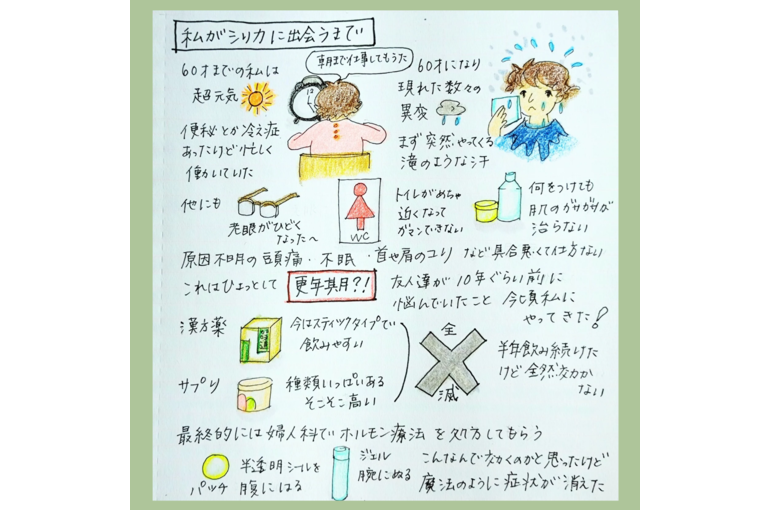 私がシリカに出会うまで
60才までの私は
超元気
便秘とか冷え症
あったけど忙しく
働いていた
朝まで仕事してもうた
12
60才になり
現れた数々の
異変
まず突然やってくる
滝のような汗
他にも
老眼がひどく
なった〜
WC
トイレがめちゃ
近くなって
ガマンできない
何をつけても
肌のガサガサが
治らない
原因不明の頭痛・不眠・首や肩のコリ など具合悪くて仕方ない
これはひょっとして 更年期?! 友人達が10年ぐらい前に
悩んでいたこと 今頃私に
やってきた!
漢方薬
今はスティックタイプで
飲みやすい
サプリ
種類いっぱいある
そこそこ高い
全
滅
半年飲み続けた
けど全然効か
ない
最終的には婦人科でホルモン療法を処方してもらう
パッチ
半透明シールを
腹にはる
ジェル
腕にぬる
こんなんで効くのかと思ったけど
魔法のように症状が消えた